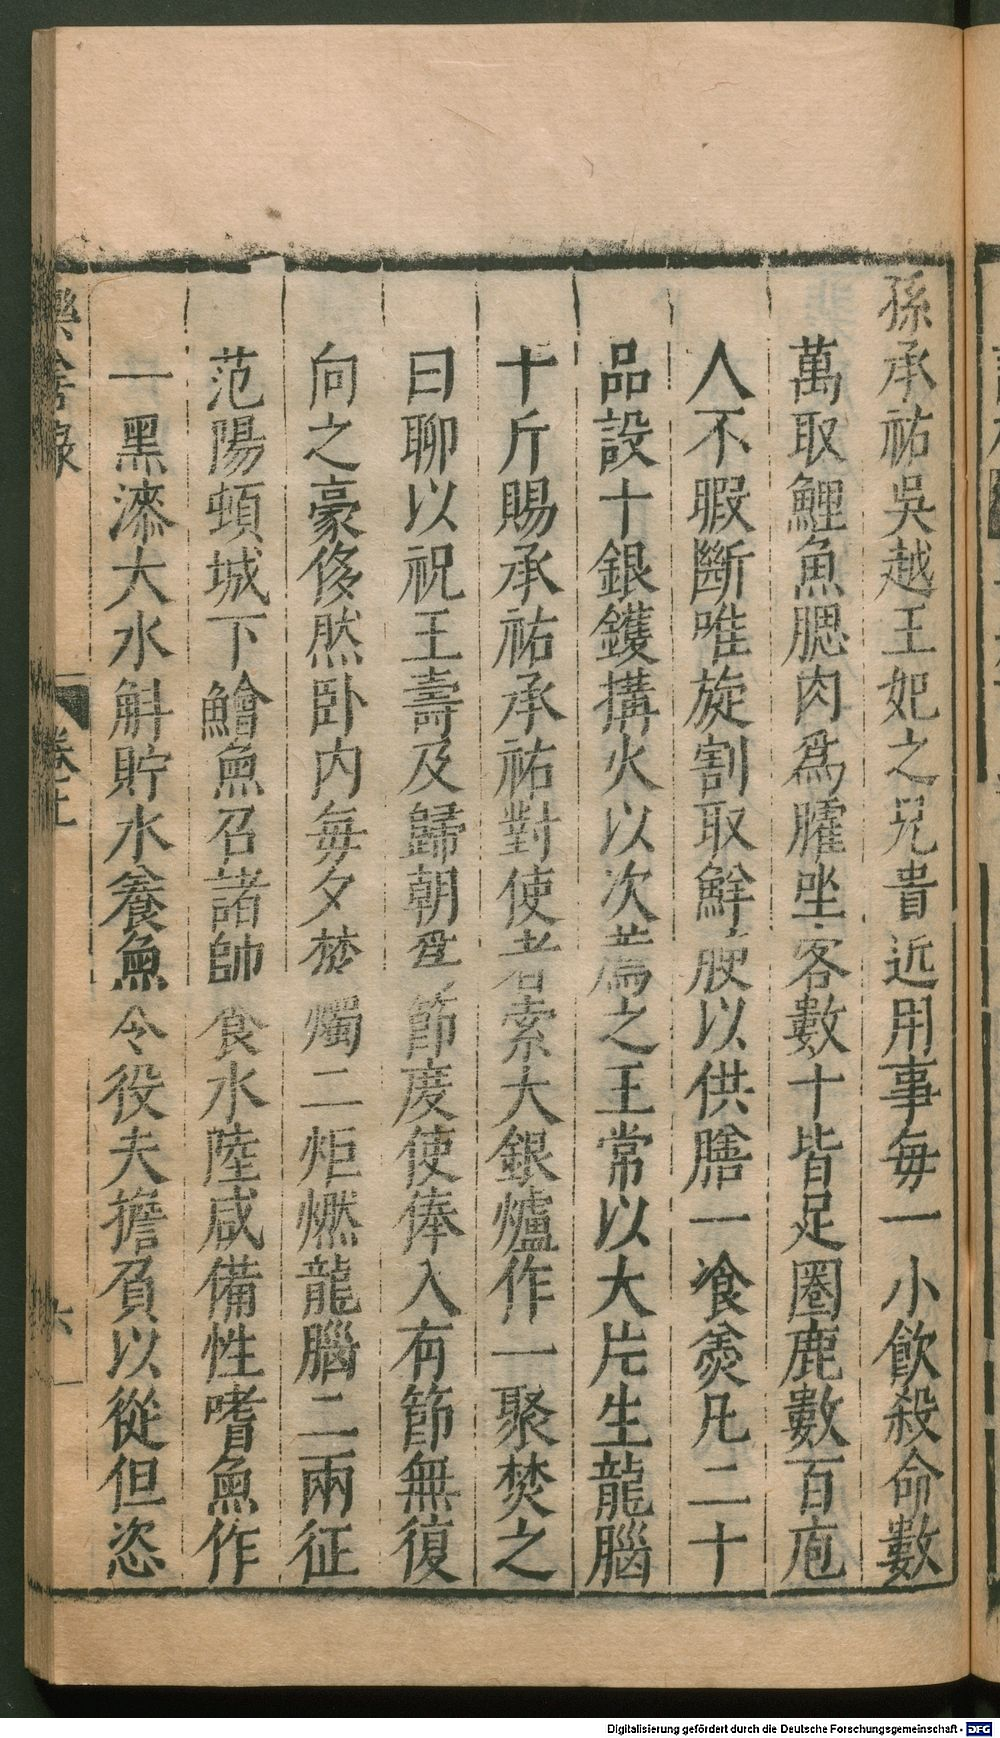 孫承祐吳越王妃之兄貴近用事每一小飲殺命數
萬取鯉魚腮肉爲臛坐客數十皆足圈鹿數百庖
人不暇斷唯旋割取鮮腴以供膳一飡羹凡二十
品設十銀鑊搆火以次薦之王常以大片生龍腦
十斤賜承祐承祐對使者索大銀爐作一聚焚之
曰聊以祝王壽及歸朝爲節度使俸入有節無復
向之豪侈然卧内每夕焚燭二炬燃龍腦二兩征
范陽頓城下鱠魚召諸帥食水陸咸備性嗜魚作
一黑漆大水斛貯水養魚令役夫擔負以從但恣
樂善錄
卷上
六
Digitalisierung gefördert durch die Deutsche Forschungsgemeinschaft - DFG